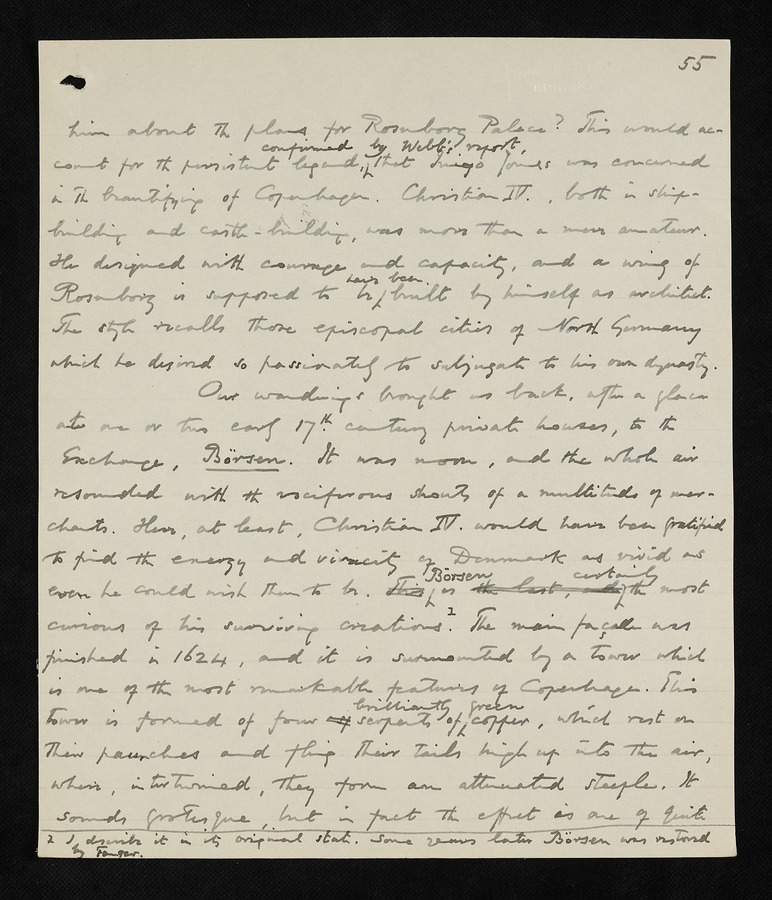 55
him about the plans for Rosenborg Palace? This would ac-
confirmed by Webb's report,
count for the persistent legend, that Inigo Jones was concerned
in the beautifying of Copenhagen. Christian IV., both in ship-
building and castle-building, was more than a mere amateur.
He designed with courage and capacity, and a wing of
have been
Rosenborg is supposed to be built by himself as architect.
The style recalls those episcopal cities of North Germany
which he desired so passionately to subjugate to his own dynasty.
Our wanderings brought us back, after a glance
into one or two early 17th century private houses, to the
Exchange, Börsen. It was noon, and the whole air
resounded with the vociferous shouts of a multitude of mer-
chants. Here, at least, Christian IV. would have been gratified
to find the energy and vivacity of Denmark as vivid as
Börsen certainly
even he could wish them to be. This is the last, and the most
curious of his surviving creations.1 The main façade was
finished in 1624, and it is surmounted by a tower which
is one of the most remarkable features of Copenhagen. This
brilliantly green
tower is formed of four serpents of copper, which rest on
their paunches and fling their tails high up into the air,
where, intertwined, they form an attenuated steeple. It
sounds grotesque, but in fact the effect is one of quite
1 I describe it in its original state. Some years later Börsen was restored
by Tanger.